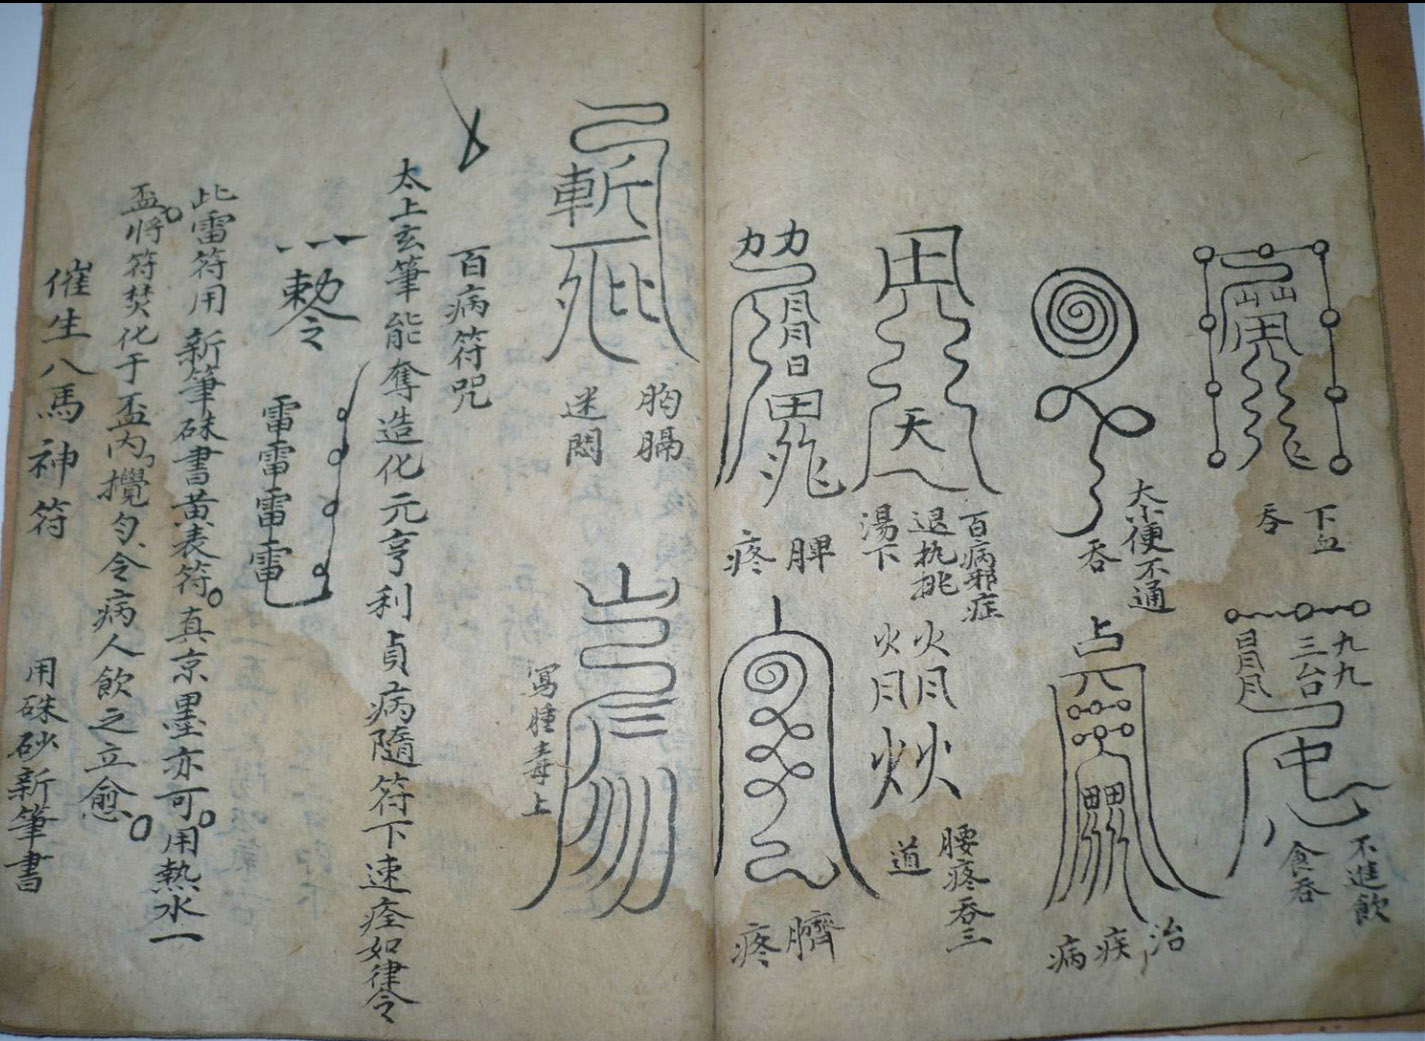 下血
吞
九九
三台
不進飲
食吞
大小便不通
吞
治
疾
病
百病邪症
退执挑
湯下
天
腰疼吞三
道
脾
疼
臍
疼
斬
胸膈
迷悶
寫腫毒上
百病符咒
太上玄筆能奪造化元亨利貞病隨符下速痊如律令
敕令
雷雷雷雷
此雷符用新筆硃書黃表符真京墨亦可用熱水一
盃將符焚化于盃內攪勻令病人飲之立愈
催生八馬神符
用硃砂新筆書